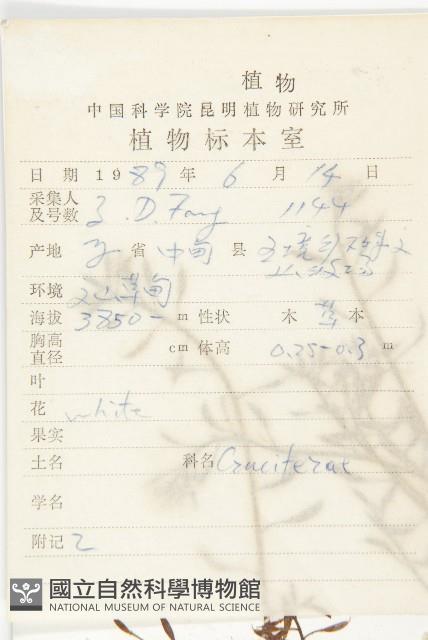 植物
中国科学院昆明植物研究所
植物标本室
日期 1989 年 6 月 14 日
采集人
及号数 D. Fang 1144
产地 省 中甸 县
环境 草甸
海拔 3850- m 性状 木 草 本
胸高
直径 cm 体高 0.25-0.3 m
叶
花 white
果实
土名 科名 Cruciferae
学名
附记 2
國立自然科學博物館
NATIONAL MUSEUM OF NATURAL SCIENCE